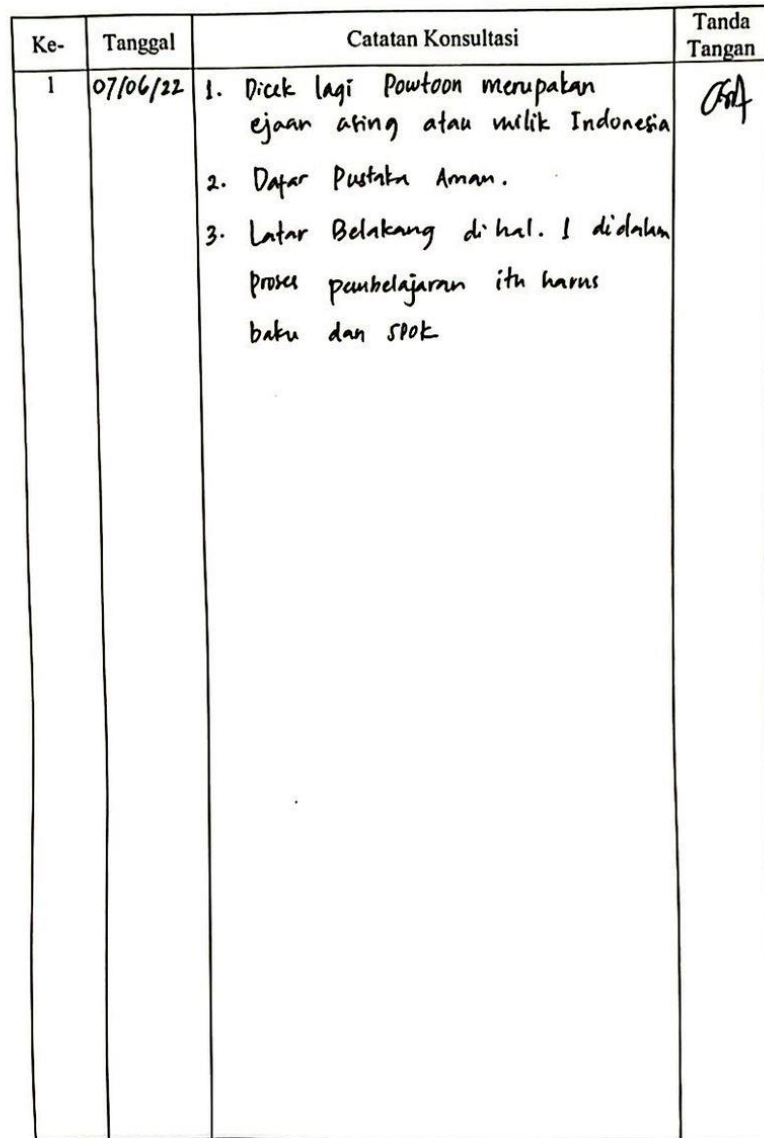 Ke- Tanggal Catatan Konsultasi Tanda Tangan
1 07/06/22 1. Dicek lagi Powtoon merupakan
ejaan asing atau milik Indonesia
2. Dafar Pustaka Aman.
3. Latar Belakang di hal. 1 didalam
proses pembelajaran itu harus
baku dan SPOK